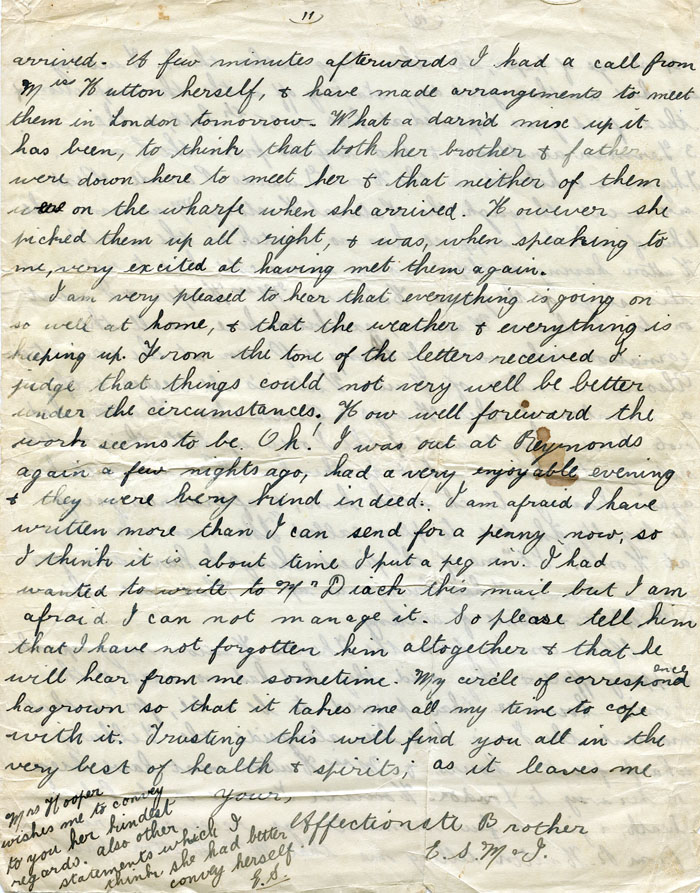 11
arrived. A few minutes afterwards I had a call from
Mis Hutton herself, & have made arrangements to meet
them in London tomorrow. What a darn'd mix up it
has been, to think that both her brother & father
were down here to meet her & that neither of them
were on the wharfe when she arrived. However she
picked them up all right, & was, when speaking to
me, very excited at having met them again.
I am very pleased to hear that everything is going on
so well at home, & that the weather & everything is
keeping up. From the tone of the letters received I
judge that things could not very well be better
under the circumstances! How well foreward the
work seems to be. Oh! I was out at Reymonds
again a few nights ago, had a very enjoyable evening
& they were very kind indeed. I am afraid I have
written more than I can send for a penny now, so
I think it is about time I put a peg in. I had
wanted to write to Mr Diack this mail but I am
afraid I can not manage it. So please tell him
that I have not forgotten him altogether & that he
will hear from me sometime. My circle of correspondence
has grown so that it takes me all my time to cope
with it. Trusting this will find you all in the
very best of health & spirits; as it leaves me
Your,
Affectionate Brother
E. S. McJ.
Mrs Hooper
wishes me to convey
to you her kindest
regards. also other
statements which I
think she had better
convey herself.
E.S.